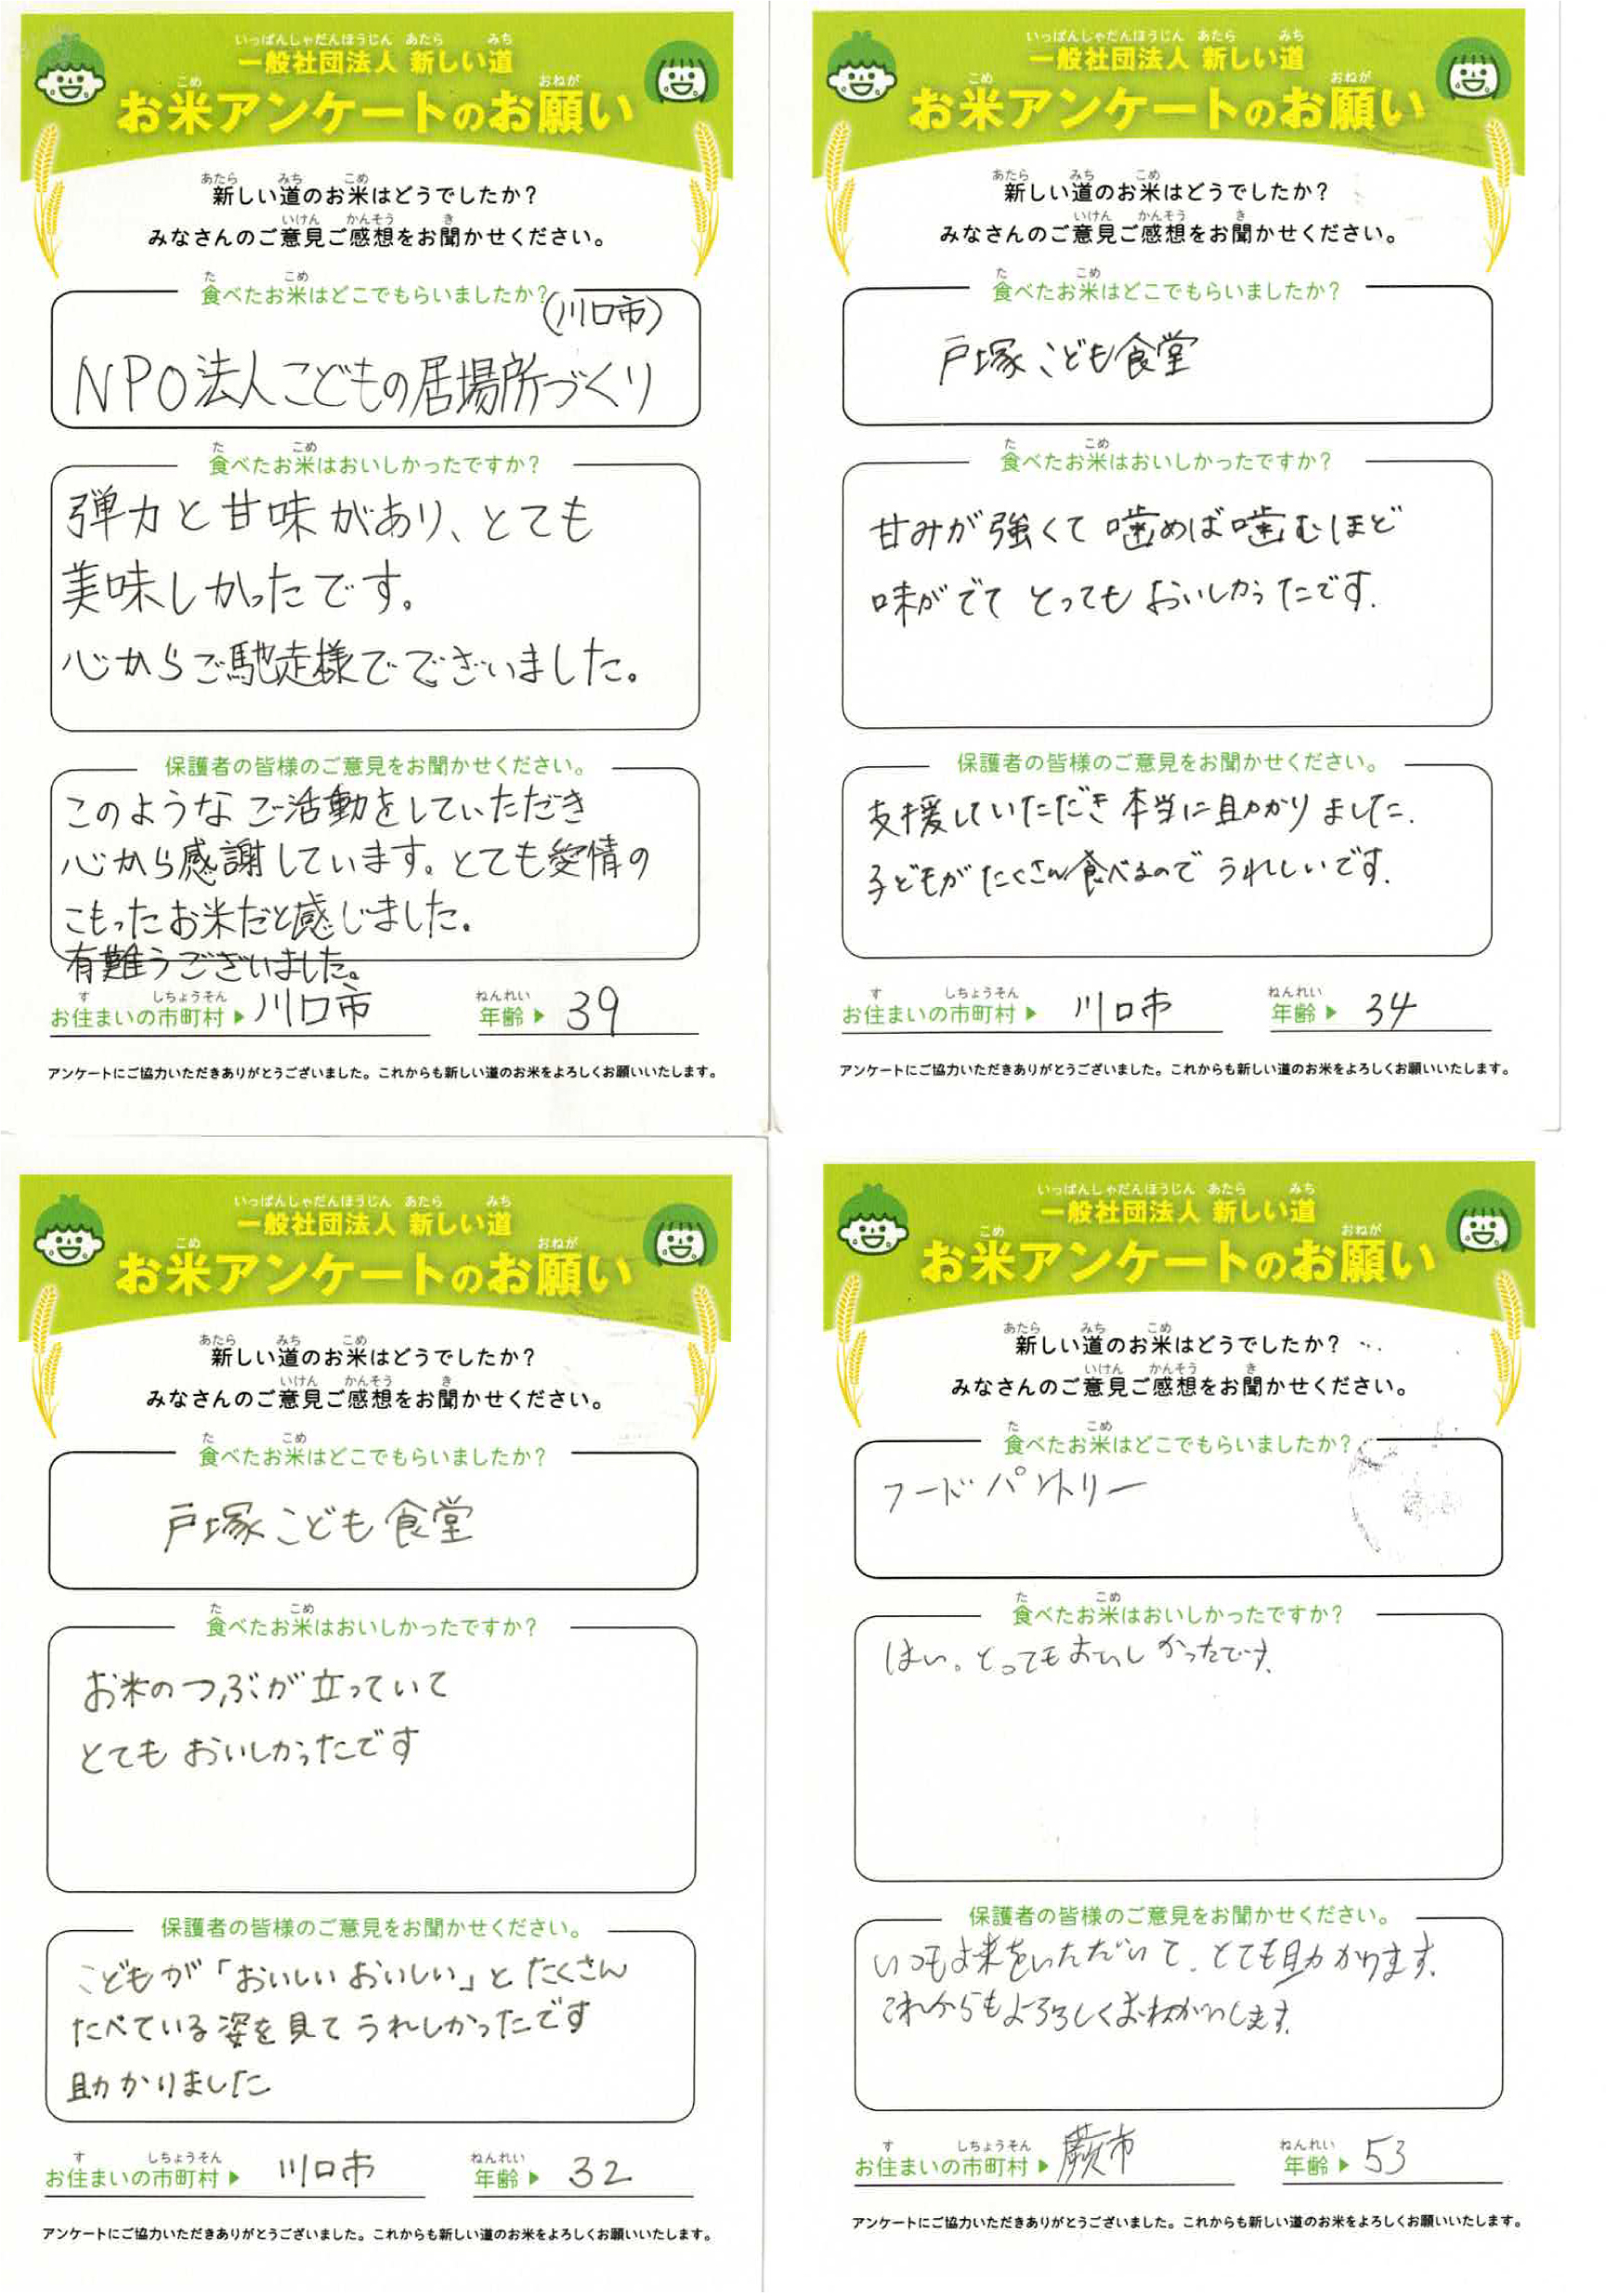 いっぱんしゃだんほうじん あたら みち
一般社団法人 新しい道
こめ おねが
お米アンケートのお願い
あたら みち こめ
新しい道のお米はどうでしたか?
いけん かんそう き
みなさんのご意見ご感想をお聞かせください。
た こめ
食べたお米はどこでもらいましたか?
(川口市)
NPO法人こどもの居場所づくり
た こめ
食べたお米はおいしかったですか?
弾力と甘味があり、とても
美味しかったです。
心からご馳走様でございました。
保護者の皆様のご意見をお聞かせください。
このようなご活動をしていただき
心から感謝しています。とても愛情の
こもったお米だと感じました。
有難うございました。
す しちょうそん ねんれい
お住まいの市町村▶ 川口市 年齢▶ 39
アンケートにご協力いただきありがとうございました。これからも新しい道のお米をよろしくお願いいたします。
いっぱんしゃだんほうじん あたら みち
一般社団法人 新しい道
こめ おねが
お米アンケートのお願い
あたら みち こめ
新しい道のお米はどうでしたか?
いけん かんそう き
みなさんのご意見ご感想をお聞かせください。
た こめ
食べたお米はどこでもらいましたか?
戸塚こども食堂
た こめ
食べたお米はおいしかったですか?
甘みが強くて噛めば噛むほど
味がでて とっても おいしかったです.
保護者の皆様のご意見をお聞かせください。
支援していただき本当に助かりました.
子どもがたくさん食べるのでうれしいです.
す しちょうそん ねんれい
お住まいの市町村▶ 川口市 年齢▶ 34
アンケートにご協力いただきありがとうございました。これからも新しい道のお米をよろしくお願いいたします。
いっぱんしゃだんほうじん あたら みち
一般社団法人 新しい道
こめ おねが
お米アンケートのお願い
あたら みち こめ
新しい道のお米はどうでしたか?
いけん かんそう き
みなさんのご意見ご感想をお聞かせください。
た こめ
食べたお米はどこでもらいましたか?
戸塚こども食堂
た こめ
食べたお米はおいしかったですか?
お米のつぶが立っていて
とてもおいしかったです
保護者の皆様のご意見をお聞かせください。
こどもが「おいしいおいしい」とたくさん
たべている姿を見てうれしかったです
助かりました
す しちょうそん ねんれい
お住まいの市町村▶ 川口市 年齢▶ 32
アンケートにご協力いただきありがとうございました。これからも新しい道のお米をよろしくお願いいたします。
いっぱんしゃだんほうじん あたら みち
一般社団法人 新しい道
こめ おねが
お米アンケートのお願い
あたら みち こめ
新しい道のお米はどうでしたか?
いけん かんそう き
みなさんのご意見ご感想をお聞かせください。
た こめ
食べたお米はどこでもらいましたか?
フードパントリー
た こめ
食べたお米はおいしかったですか?
はい。とってもおいしかったです.
保護者の皆様のご意見をお聞かせください。
いつもお米をいただいて、とても助かります.
これからもよろしくおねがいします.
す しちょうそん ねんれい
お住まいの市町村▶ 蕨市 年齢▶ 53
アンケートにご協力いただきありがとうございました。これからも新しい道のお米をよろしくお願いいたします。